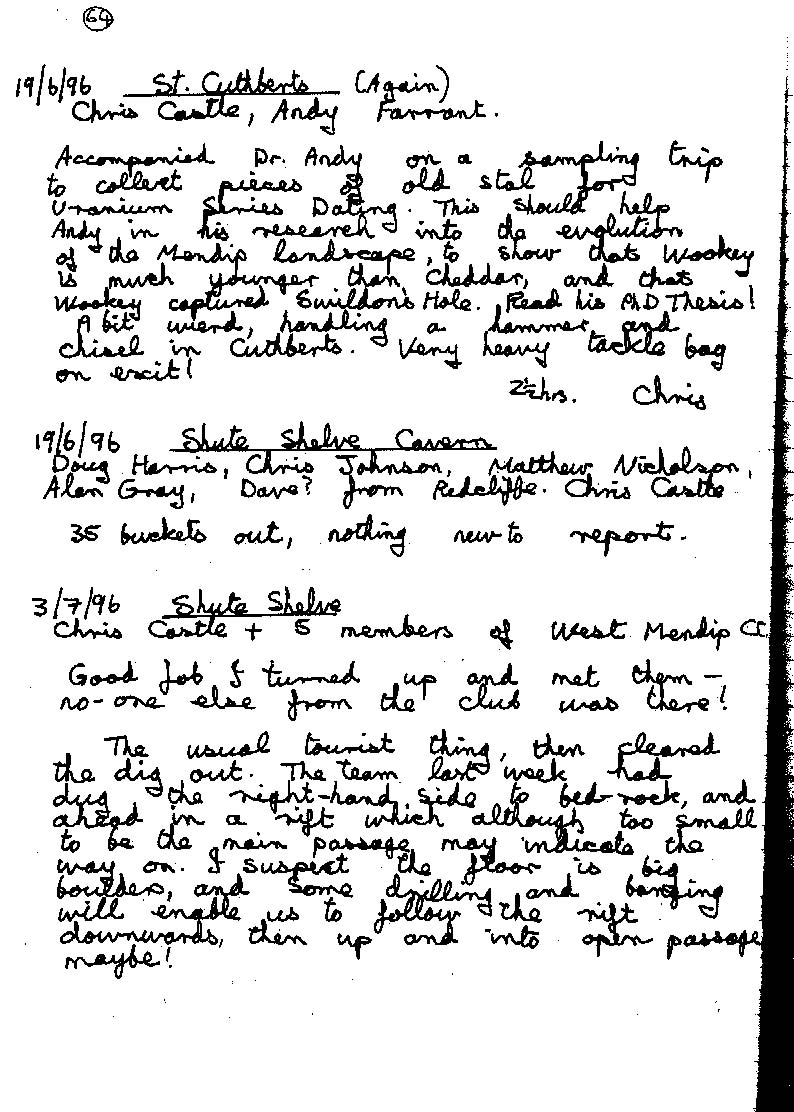 64
19/6/96 St. Cuthberts (Again)
Chris Castle, Andy Farrant.
Accompanied Dr. Andy on a sampling trip
to collect pieces of old stal for
Uranium Series Dating. This should help
Andy in his research into the evolution
of the Mendip landscape, to show that Wookey
is much younger than Cheddar, and that
Wookey captured Swildon's Hole. Read his PhD Thesis!
A bit wierd, handling a hammer and
chisel in Cuthberts. Very heavy tackle bag
on exit!
2½hrs. Chris
19/6/96 Shute Shelve Cavern
Doug Harris, Chris Johnson, Matthew Nicholson,
Alan Gray, Dave? from Redcliffe. Chris Castle
35 buckets out, nothing new to report.
3/7/96 Shute Shelve
Chris Castle + 5 members of West Mendip CC
Good job I turned up and met them –
no-one else from the club was there!
The usual tourist thing, then cleared
the dig out. The team last week had
dug the right-hand side to bed-rock, and
ahead in a rift which although too small
to be the main passage may indicate the
way on. I suspect the floor is big
boulders, and some drilling and banging
will enable us to follow the rift
downwards, then up and into open passage
maybe!